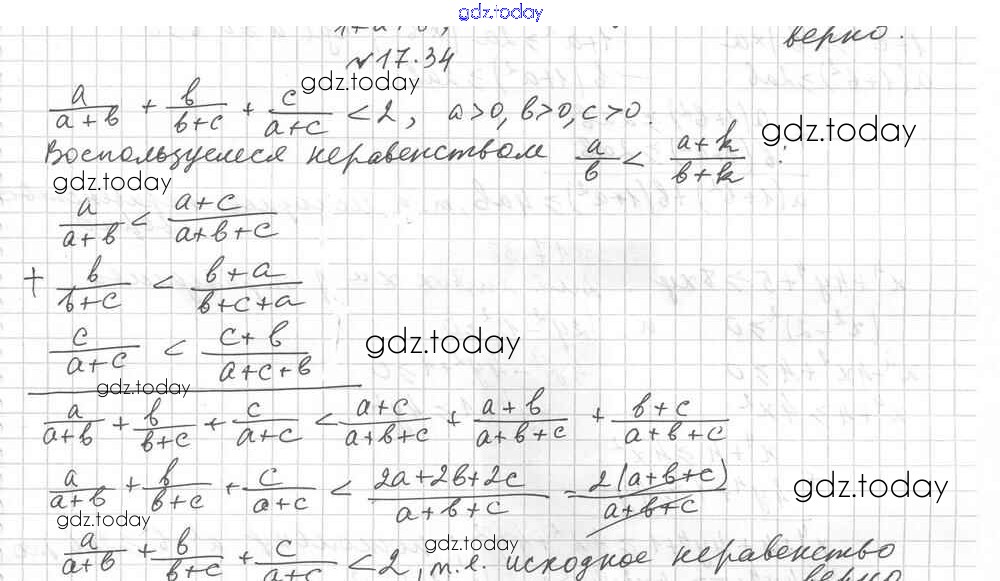 gdz.today
верно.
№17.34
gdz.today
a/(a+b) + b/(b+c) + c/(a+c) < 2, a>0, b>0, c>0.
gdz.today
Воспользуемся неравенством a/b < (a+k)/(b+k) :
gdz.today
a/(a+b) < (a+c)/(a+b+c)
+ b/(b+c) < (b+a)/(b+c+a)
c/(a+c) < (c+b)/(a+c+b)
gdz.today
gdz.today
a/(a+b) + b/(b+c) + c/(a+c) < (a+c)/(a+b+c) + (a+b)/(a+b+c) + (b+c)/(a+b+c)
a/(a+b) + b/(b+c) + c/(a+c) < (2a+2b+2c)/(a+b+c) = 2(a+b+c)/(a+b+c)
gdz.today
gdz.today
gdz.today
a/(a+b) + b/(b+c) + c/(a+c) < 2, т.е. исходное неравенство
верно